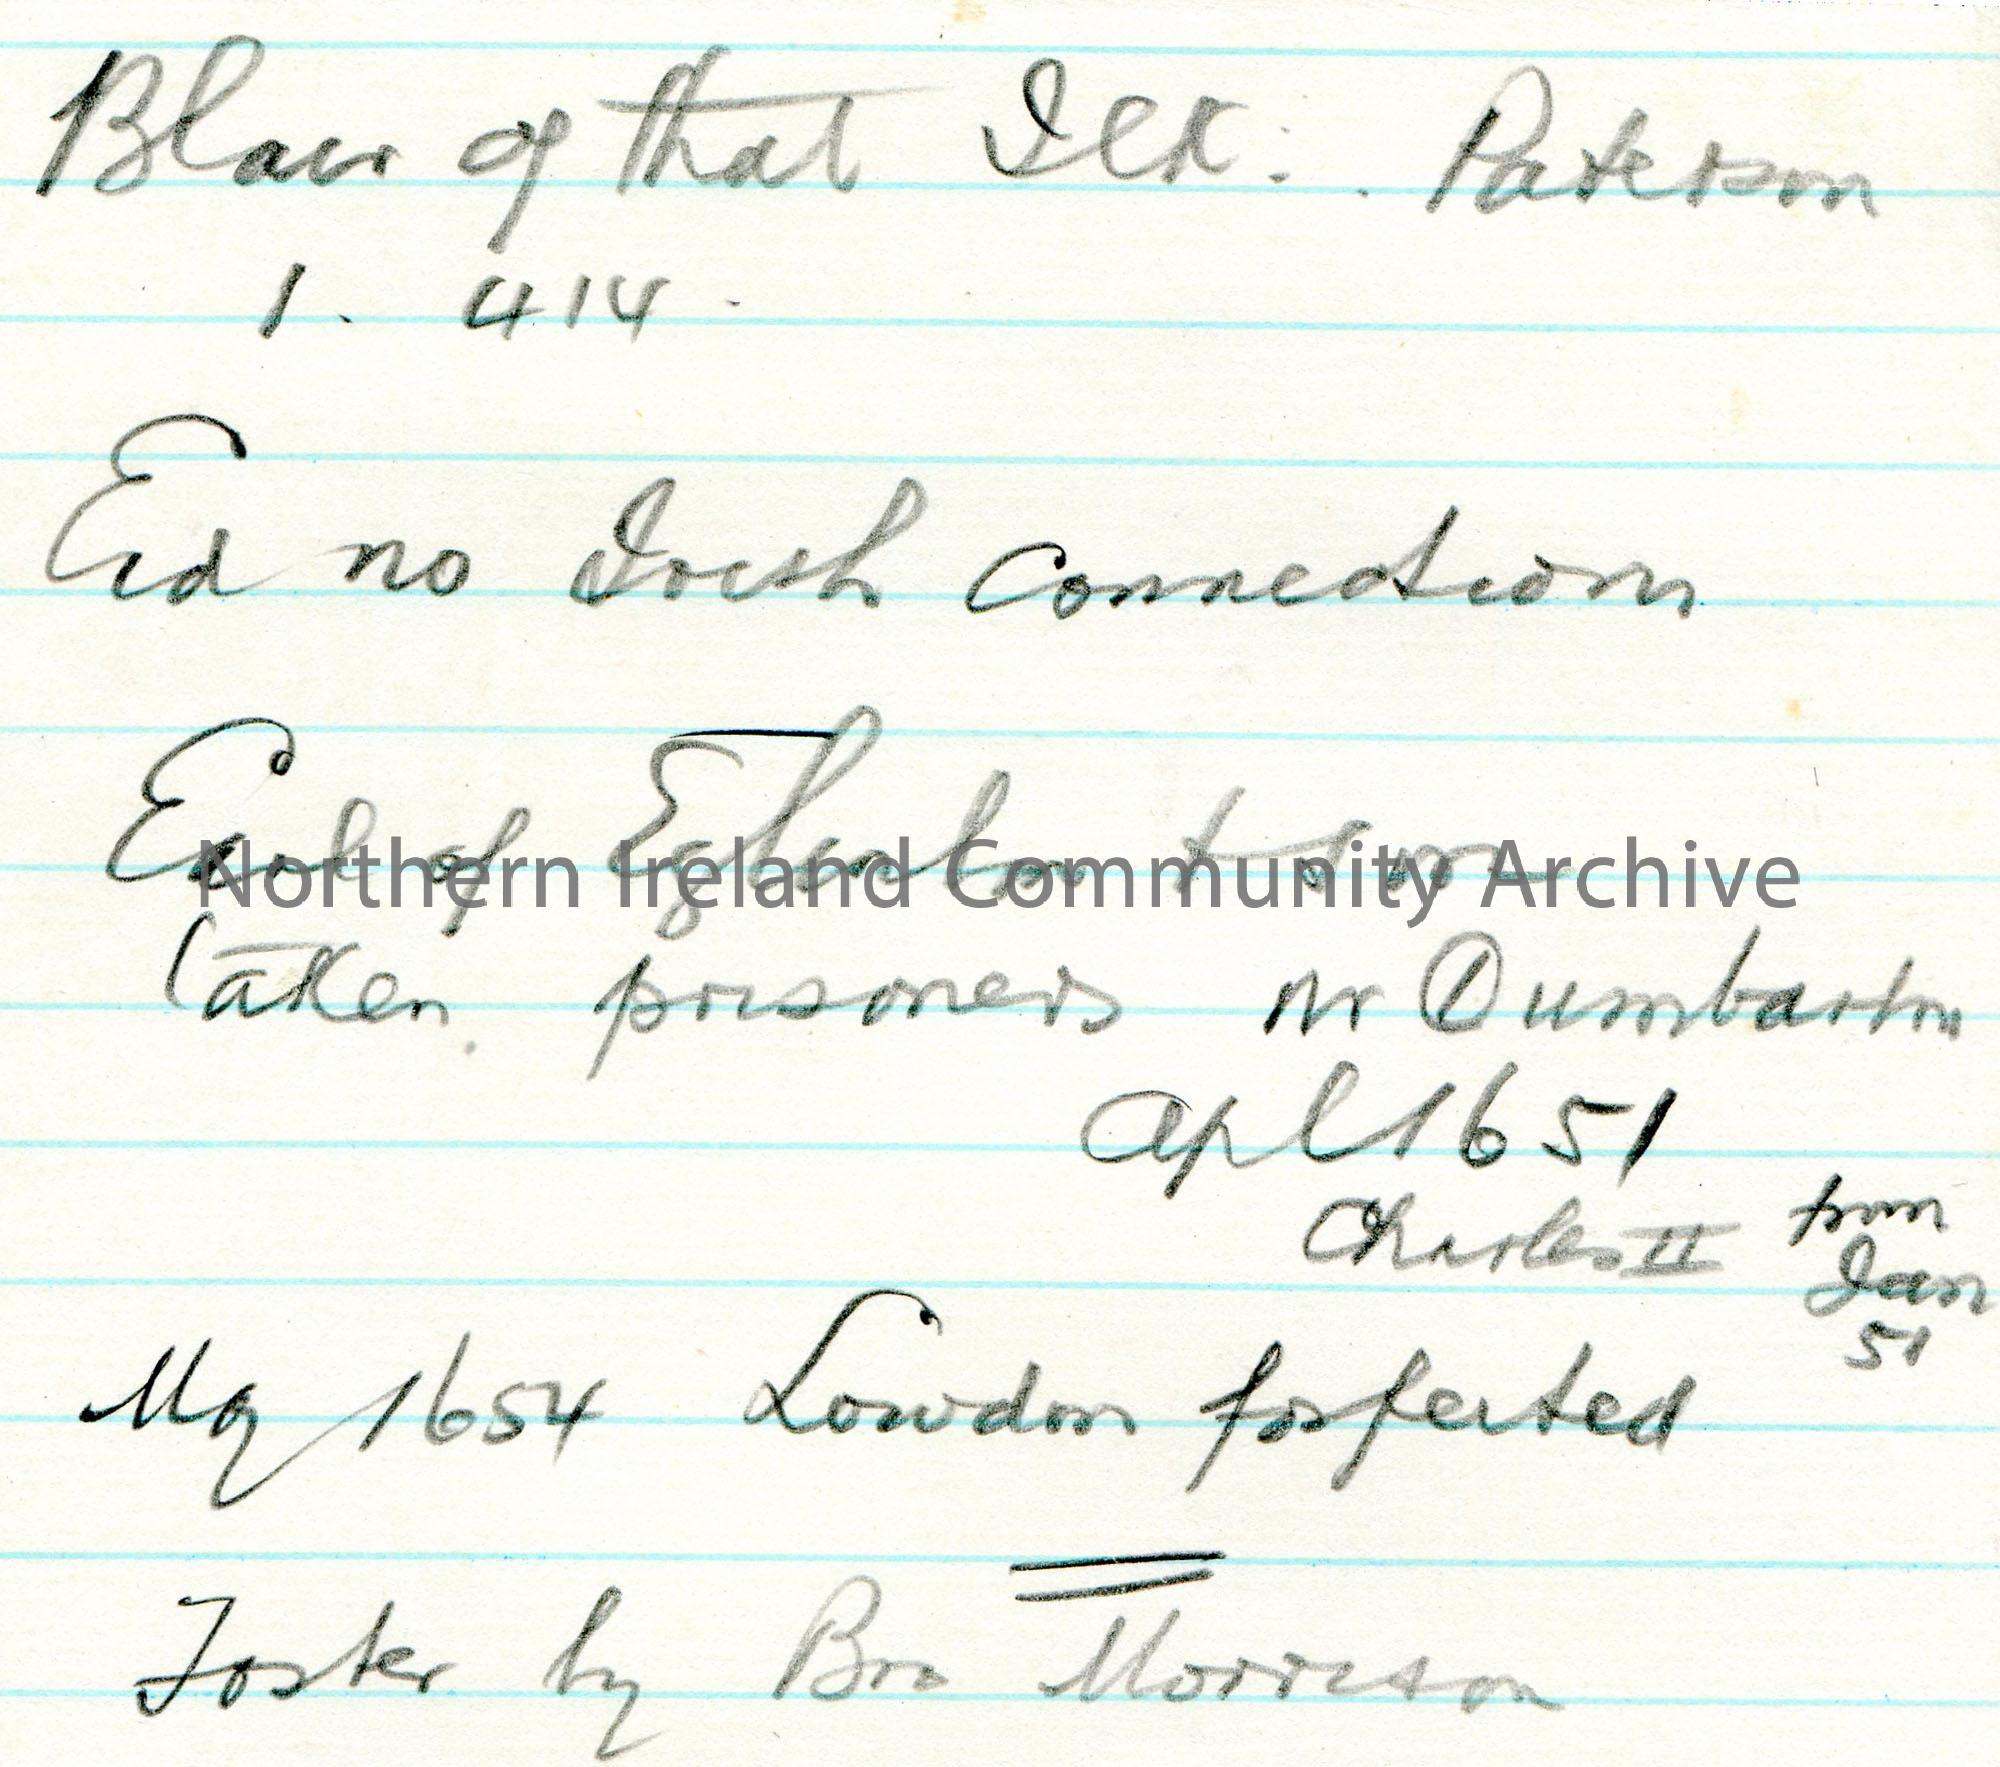 Blair of that Ilk. Paterson
1. 414.
End no Irish Connection
Earl of Eglinton + son
Northern Ireland Community Archive
taken prisoners nr Dumbarton
Apl 1651
Charles II from
Jan
51
May 1654 Lowdon forfeited
Foster by Bro Morrison